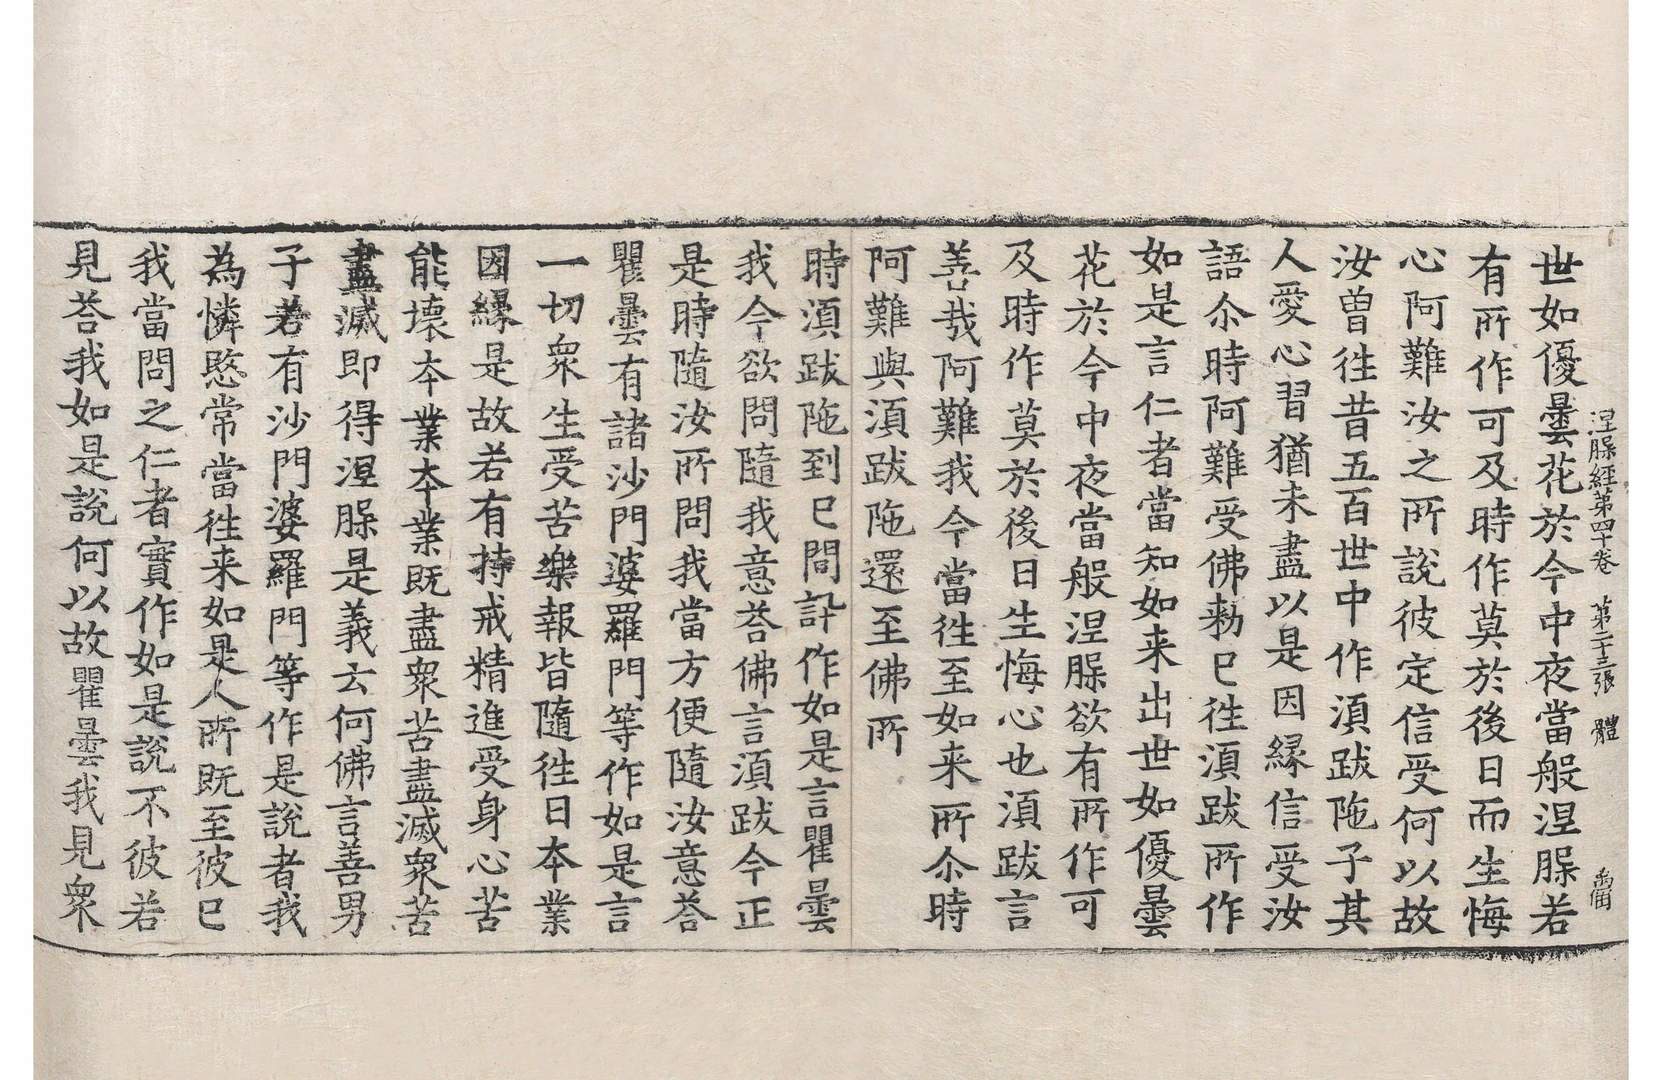 涅槃經第四十卷 第二十三張 體
世如優曇花於今中夜當般涅槃若
有所作可及時作莫於後日而生悔
心阿難汝之所說彼定信受何以故
汝曾往昔五百世中作須跋陁子其
人愛心習猶未盡以是因緣信受汝
語尒時阿難受佛勑已往須跋所作
如是言仁者當知如来出世如優曇
花於今中夜當般涅槃欲有所作可
及時作莫於後日生悔心也須跋言
善哉阿難我今當往至如来所尒時
阿難與須跋陁還至佛所
時須跋陁到已問訊作如是言瞿曇
我今欲問隨我意荅佛言須跋今正
是時隨汝所問我當方便隨汝意荅
瞿曇有諸沙門婆羅門等作如是言
一切衆生受苦樂報皆隨往日本業
因緣是故若有持戒精進受身心苦
能壞本業本業既盡衆苦盡滅衆苦
盡滅即得涅槃是義云何佛言善男
子若有沙門婆羅門等作是說者我
為憐愍常當往来如是人所既至彼已
我當問之仁者實作如是說不彼若
見荅我如是說何以故瞿曇我見衆